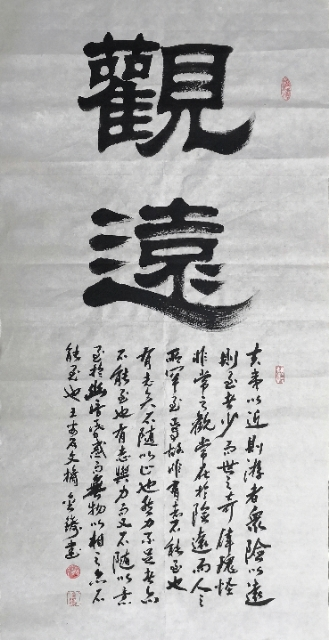 觀遠
夫夷以近則游者衆險以遠
則至者少而世之奇偉瑰怪
非常之觀常在於險遠而人之
所罕至焉故非有志不能至也
有志矣不隨以止也然力不足者亦
不能至也有志與力而又不隨以怠
至於幽暗昏惑而無物以相之亦不
能至也王安石文摘書